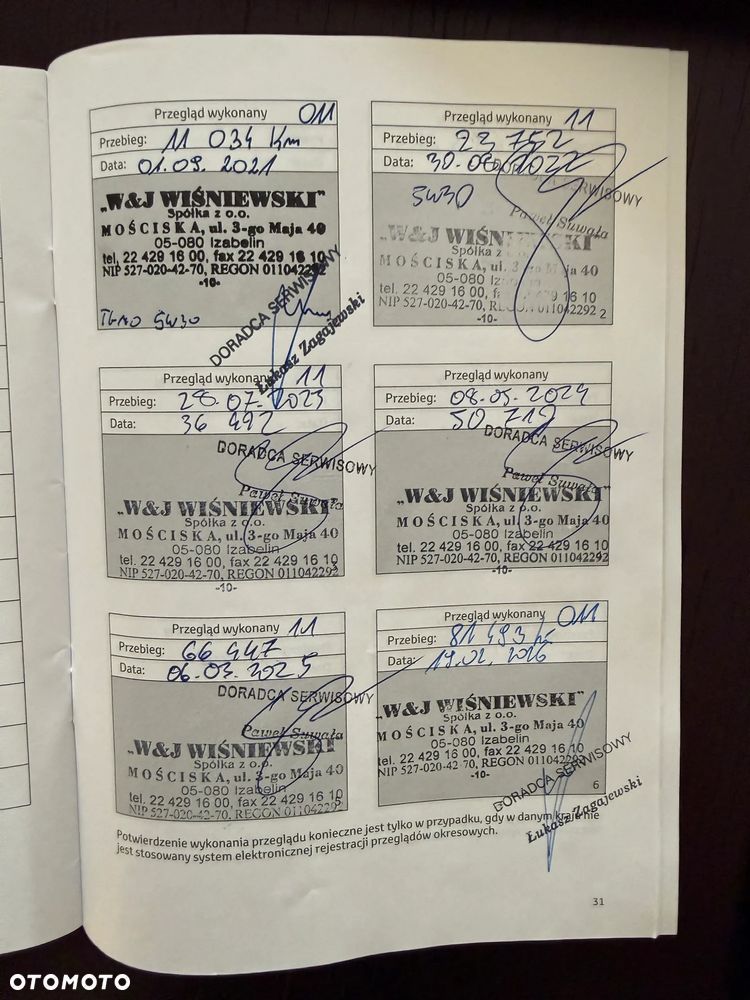 Przegląd wykonany 011
Przebieg: 11 034 km
Data: 01.09.2021
„W&J WIŚNIEWSKI"
Spółka z o.o.
MOŚCISKA, ul. 3-go Maja 40
05-080 Izabelin
tel. 22 429 16 00, fax 22 429 16 10
NIP 527-020-42-70, REGON 011042292
-10-
5W30
DORADCA SERWISOWY
Łukasz Zagajewski
Przegląd wykonany 11
Przebieg: 23 752
Data: 30.08.2022
DORADCA SERWISOWY
5W30
Paweł Suwała
„W&J WIŚNIEWSKI"
Spółka z o.o.
MOŚCISKA, ul. 3-go Maja 40
05-080 Izabelin
tel. 22 429 16 00, fax 22 429 16 10
NIP 527-020-42-70, REGON 011042292
2
-10-
Przegląd wykonany 11
Przebieg: 28.07.2023
Data: 36 492
DORADCA SERWISOWY
Paweł Suwała
„W&J WIŚNIEWSKI"
Spółka z o.o.
MOŚCISKA, ul. 3-go Maja 40
05-080 Izabelin
tel. 22 429 16 00, fax 22 429 16 10
NIP 527-020-42-70, REGON 011042292
-10-
Przegląd wykonany
Przebieg: 08.05.2024
Data: 50 712
DORADCA SERWISOWY
Paweł Suwała
„W&J WIŚNIEWSKI"
Spółka z o.o.
MOŚCISKA, ul. 3-go Maja 40
05-080 Izabelin
tel. 22 429 16 00, fax 22 429 16 10
NIP 527-020-42-70, REGON 011042292
-10-
Przegląd wykonany 11
Przebieg: 66 447
Data: 06.03.2025
DORADCA SERWISOWY
Paweł Suwała
„W&J WIŚNIEWSKI"
Spółka z o.o.
MOŚCISKA, ul. 3-go Maja 40
05-080 Izabelin
tel. 22 429 16 00, fax 22 429 16 10
NIP 527-020-42-70, REGON 011042292
Przegląd wykonany 011
Przebieg: 81 493 km
Data: 19.02.2026
„W&J WIŚNIEWSKI"
Spółka z o.o.
MOŚCISKA, ul. 3-go Maja 40
05-080 Izabelin
tel. 22 429 16 00, fax 22 429 16 10
NIP 527-020-42-70, REGON 011042292
-10-
6
DORADCA SERWISOWY
Łukasz Zagajewski
Potwierdzenie wykonania przeglądu konieczne jest tylko w przypadku, gdy w danym kraju nie
jest stosowany system elektronicznej rejestracji przeglądów okresowych.
31
OTOMOTO